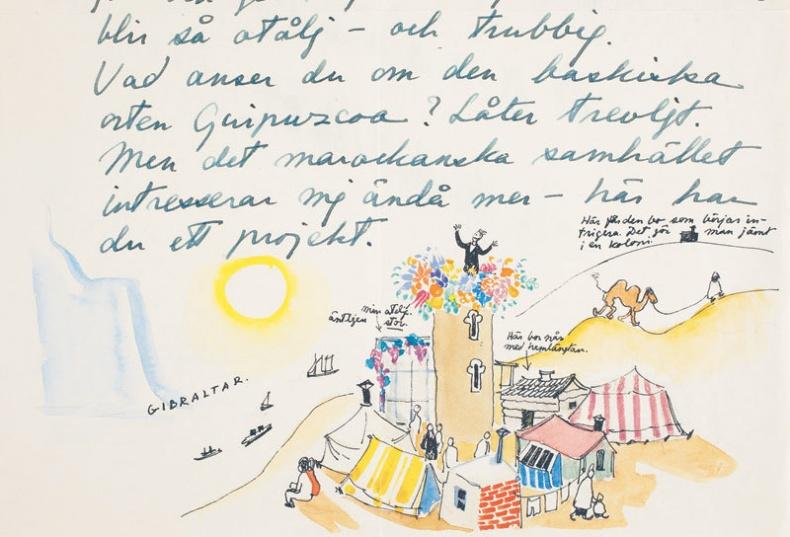 blir så otålj - och trubbig.
Vad anser du om den baskiska
orten Guipuzcoa? Låter trevligt.
Men det marockanska samhället
intresserar mig ändå mer - här har
du ett projekt.
Här får den bo som börjar in-
trigera. Det gör man jämt
i en koloni.
min atelj.
äntligen stor.
Här bor nån
med hemlängtan.
GIBRALTAR.